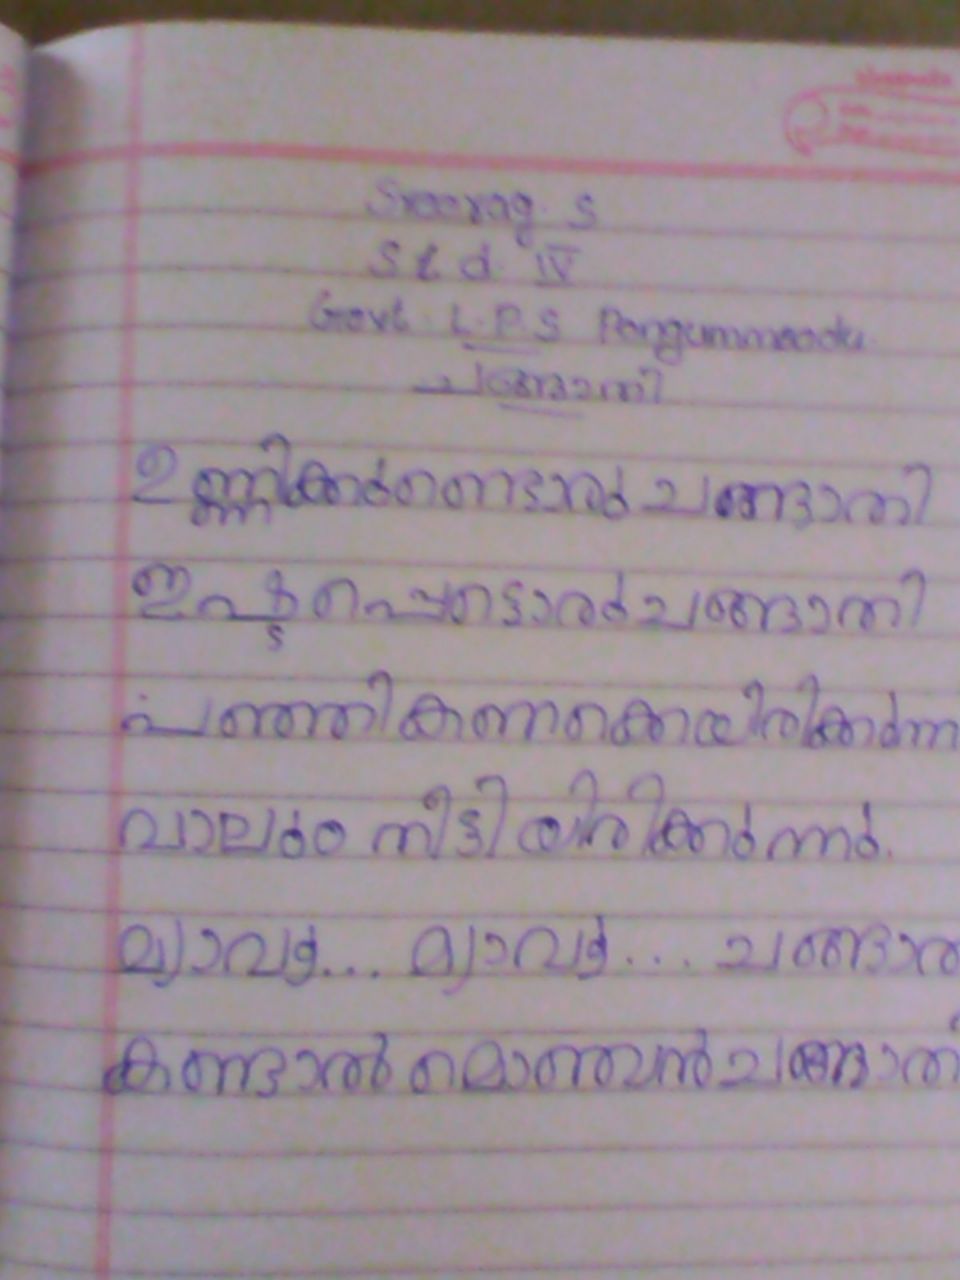 Sreerag. S
Std IV
Govt. L.P.S Pongummoodu
ചങ്ങാതി
ഉണ്ണിക്കുണ്ടൊരു ചങ്ങാതി
ഇഷ്ടപ്പെട്ടൊരു ചങ്ങാതി
പഞ്ഞി കണക്കെയിരിക്കുന്ന
വാലും നീട്ടിയിരിക്കുന്നു.
മ്യാവൂ... മ്യാവൂ...
കണ്ടാൽ മൊഞ്ചൻ ചങ്ങാതി